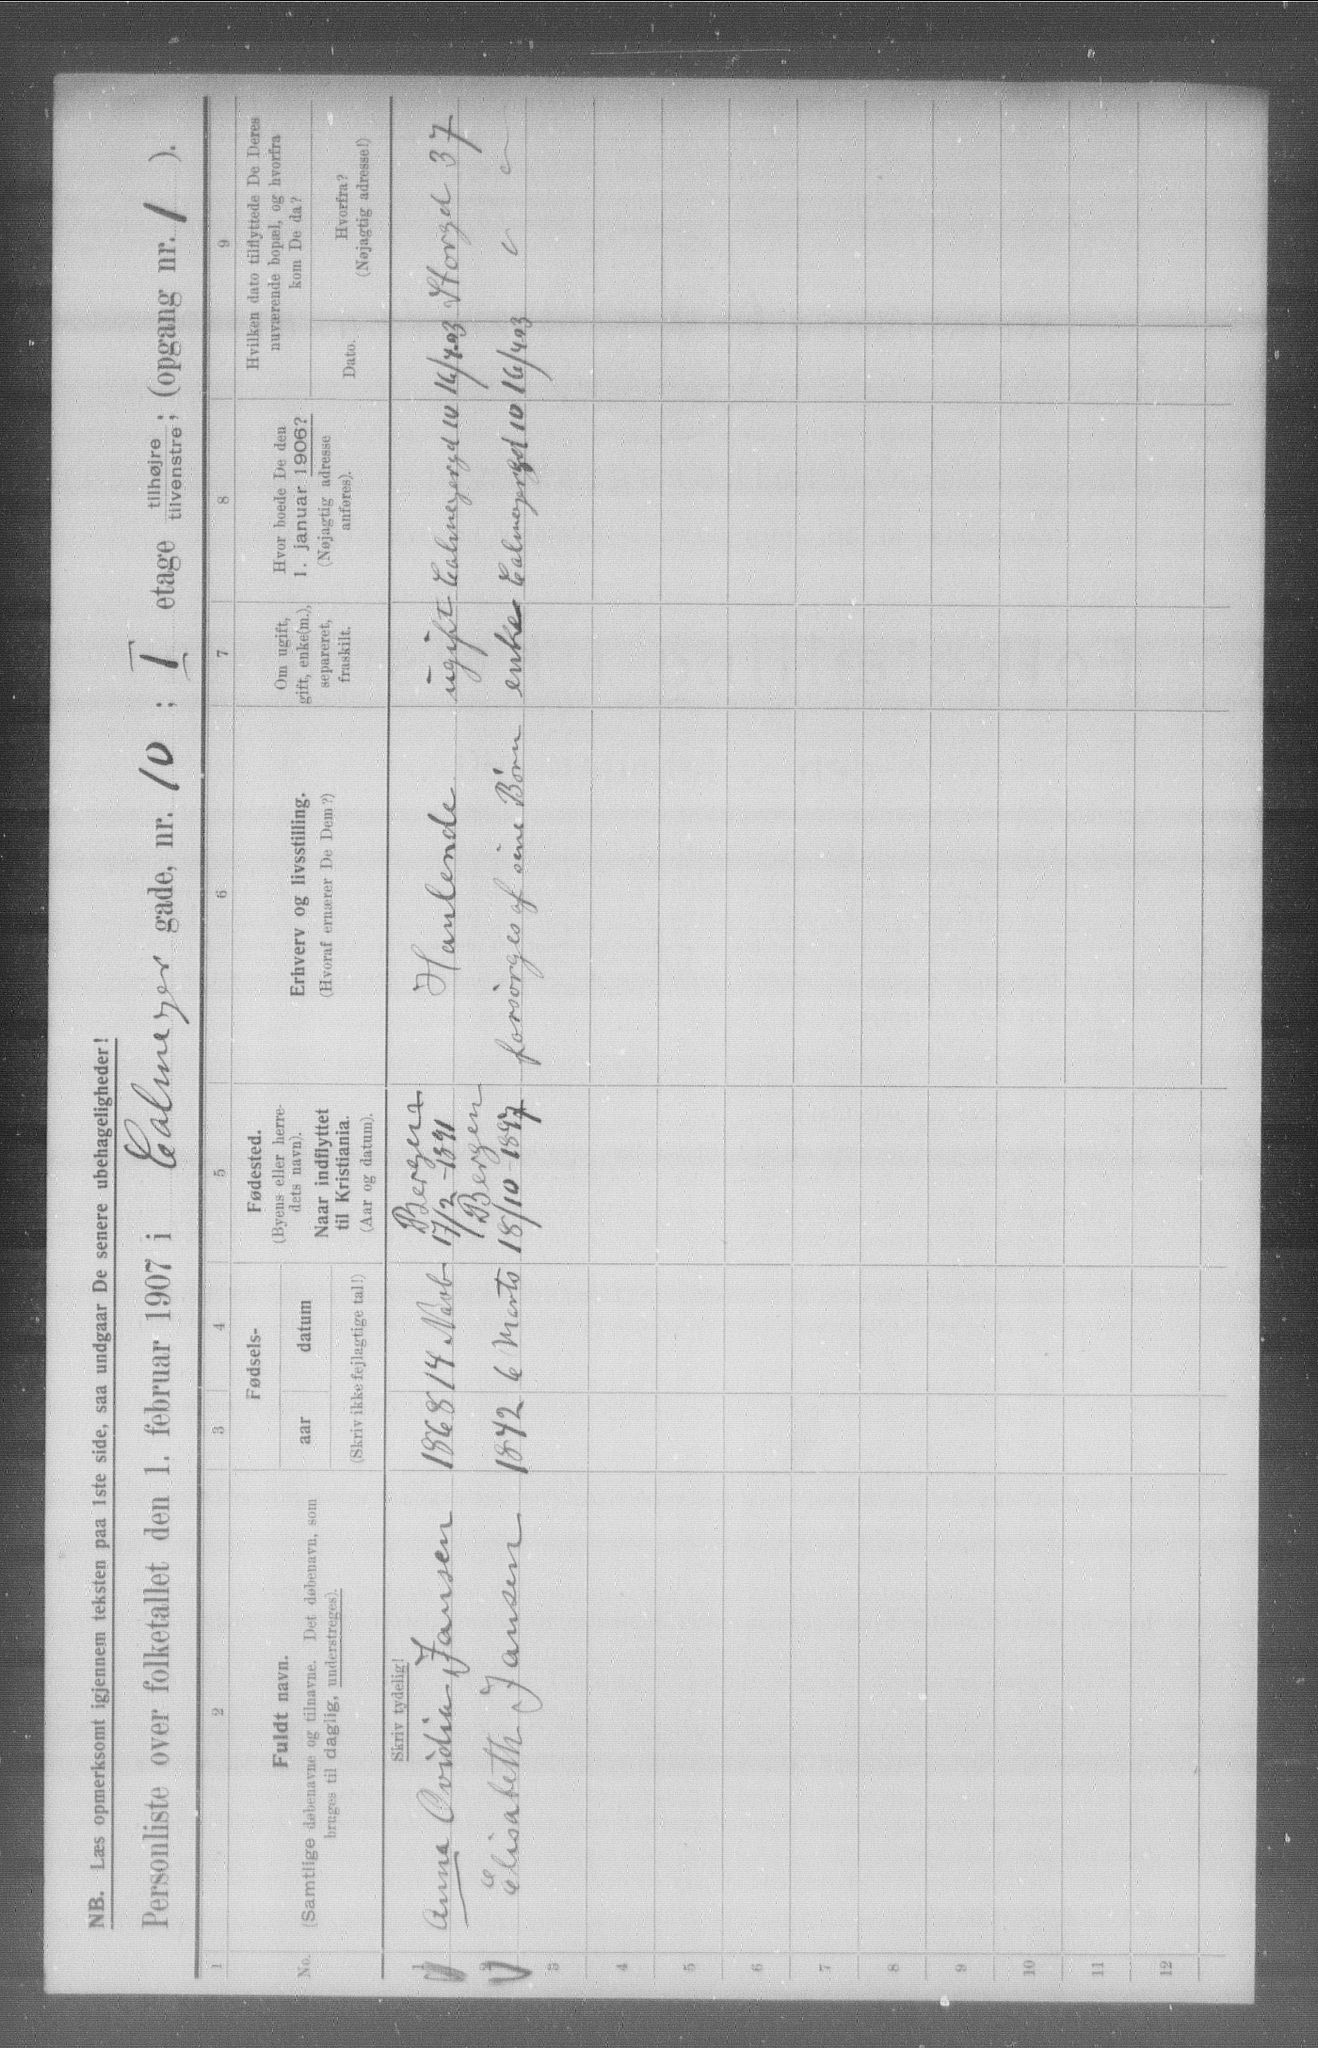 NB. Læs opmerksomt igjennem teksten paa 1ste side, saa undgaar De senere ubehageligheder!
Personliste over folketallet den 1. februar 1907 i Calmeyer gade, nr. 10 ; I etage tilhøjre tilvenstre ; (opgang nr. 1 ).
1 2 3 4 5 6 7 8 9
No.
Fuldt navn.
(Samtlige døbenavne og tilnavne. Det døbenavn, som
bruges til daglig, understreges).
Fødsels-
aar datum
(Skriv ikke fejlagtige tal!)
Fødested.
(Byens eller herre-
dets navn).
Naar indflyttet
til Kristiania.
(Aar og datum).
Erhverv og livsstilling.
(Hvoraf ernærer De Dem?)
Om ugift,
gift, enke(m.),
separeret,
fraskilt.
Hvor boede De den
1. januar 1906?
(Nøjagtig adresse
anføres).
Hvilken dato tilflyttede De Deres
nuværende bopæl, og hvorfra
kom De da?
Dato.
Hvorfra?
(Nøjagtig adresse!)
Skriv tydelig!
1 Anna Ovidia Jansen 1868 14 Novb Bergen 17/2 - 1891 Hanlende ugift Calmeyergd 10 16/4 03 Storgd 37
2 Elisabeth Jansen 1842 6 Marts Bergen 18/10 - 1897 forsørges af sine Børn enke Calmeyergd 10 16/4 03
3
4
5
6
7
8
9
10
11
12